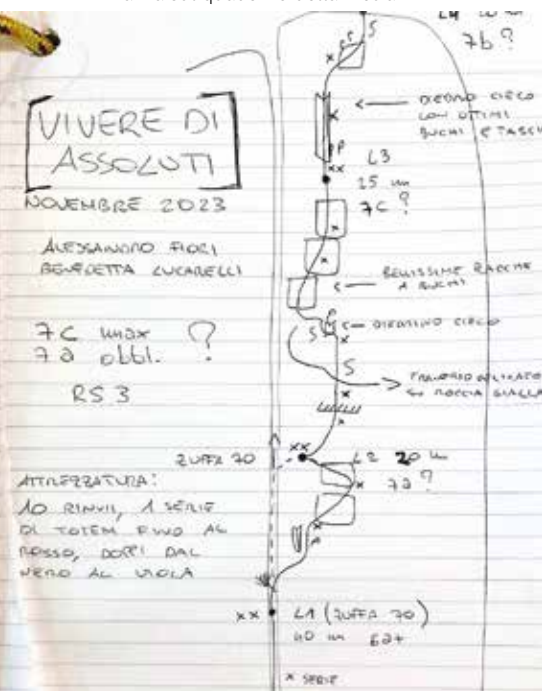 VIVERE DI
ASSOLUTI
NOVEMBRE 2023
ALESSANDRO FIORI
BENEDETTA LUCARELLI
7c max ?
7a obbl.
RS 3
ATTREZZATURA:
10 RINVII, 1 SERIE
DI TOTEM FINO AL
ROSSO, DOPPI DAL
NERO AL VIOLA
L4
7b ?
DIEDRO CIECO
CON OTTIMI
BUCHI E TASCHE
L3
25 m
7c ?
BELLISSIME PLACCHE
A BUCHI
DIEDRINO CIECO
TRAVERSO DELICATO
SU ROCCIA GIALLA
ZUFFA 70
L2 20 m
7a ?
L1 (ZUFFA 70)
40 m 6a+
x SERIE